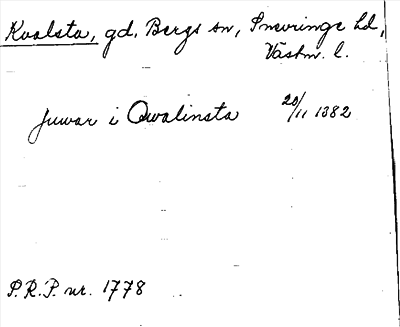 Kvalsta, gd, Bergs sn, Snevringe hd,
Västm. l.
Juwar i Qwalinsta 20/11 1382
P.R.P. nr. 1778